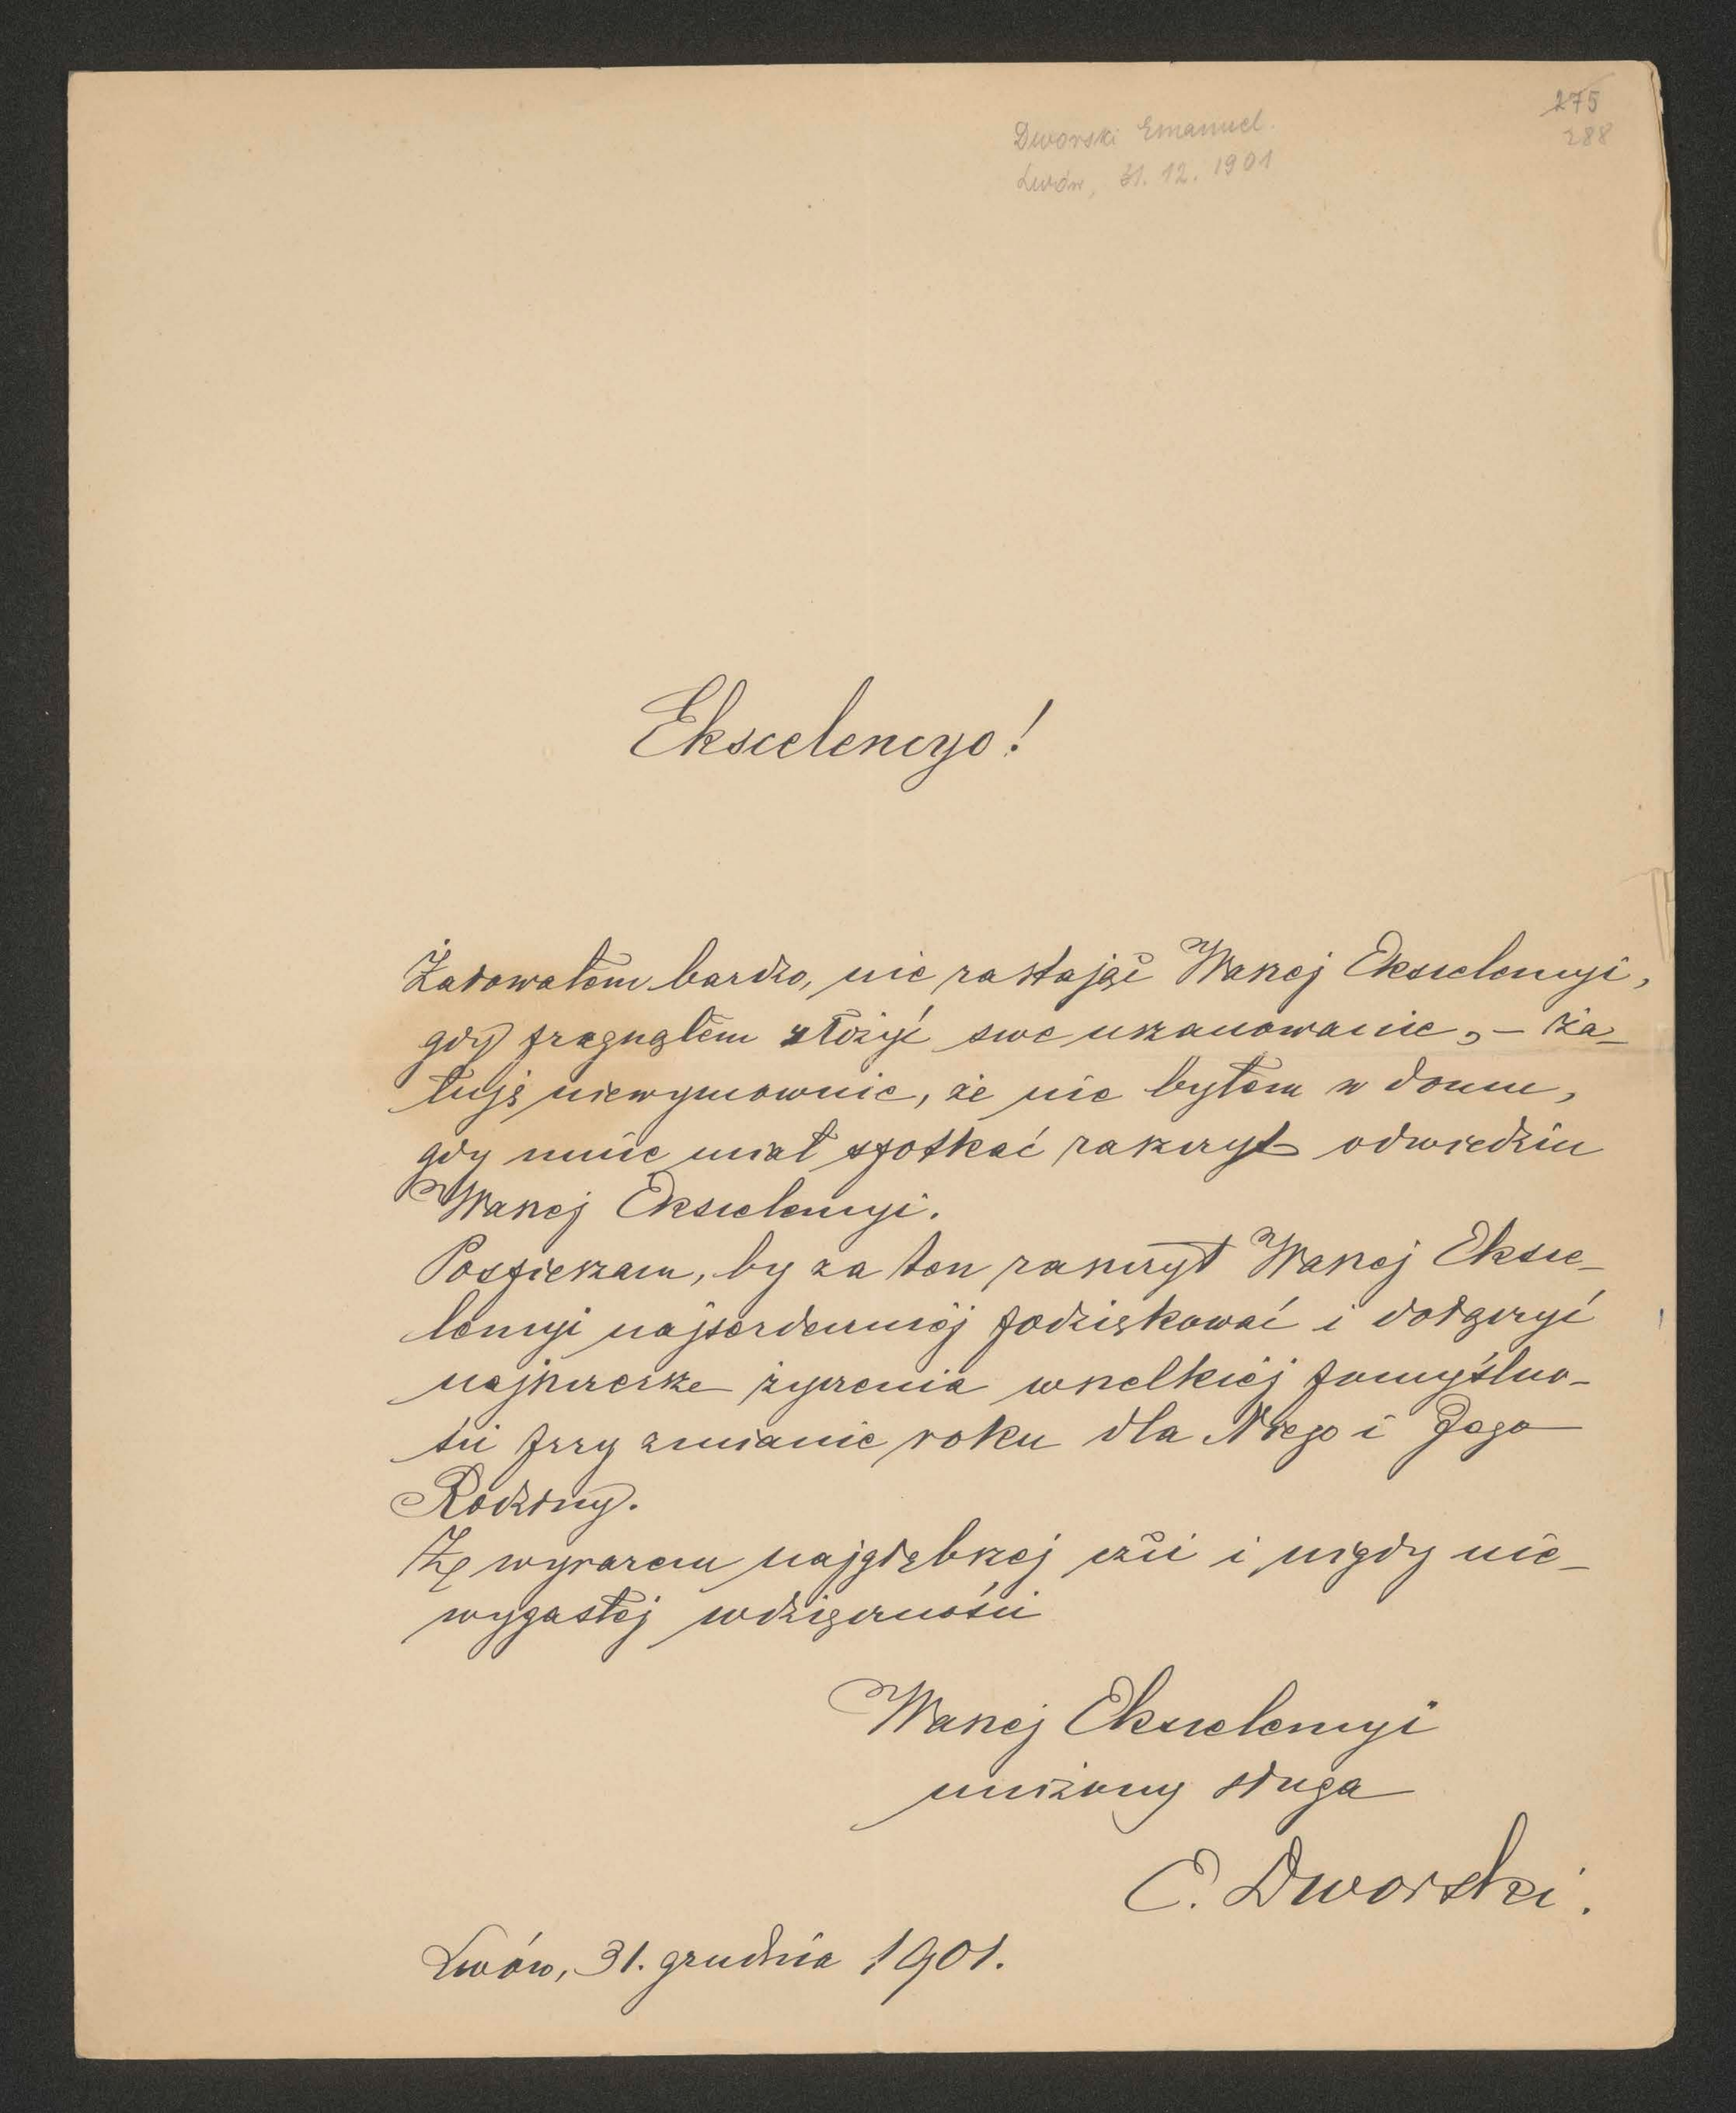 275
288
Dworski Emanuel.
Lwów, 31. 12. 1901
Ekscelencyo!
Żałowałem bardzo, nie zastając Waszej Ekscelencyi,
gdy pragnąłem złożyć swe uszanowanie, – ża-
łuję niewymownie, że nie byłem w domu,
gdy mnie miał spotkać zaszczyt odwiedzin
Waszej Ekscelencyi.
Pospieszam, by za ten zaszczyt Waszej Eksce-
lencyi najserdeczniej podziękować i dołączyć
najszczersze życzenia wszelkiej pomyślno-
ści przy zmianie roku dla Niego i Jego
Rodziny.
Z wyrazem najgłębszej czci i nigdy nie-
wygasłej wdzięczności
Waszej Ekscelencyi
uniżony sługa
E. Dworski.
Lwów, 31. grudnia 1901.